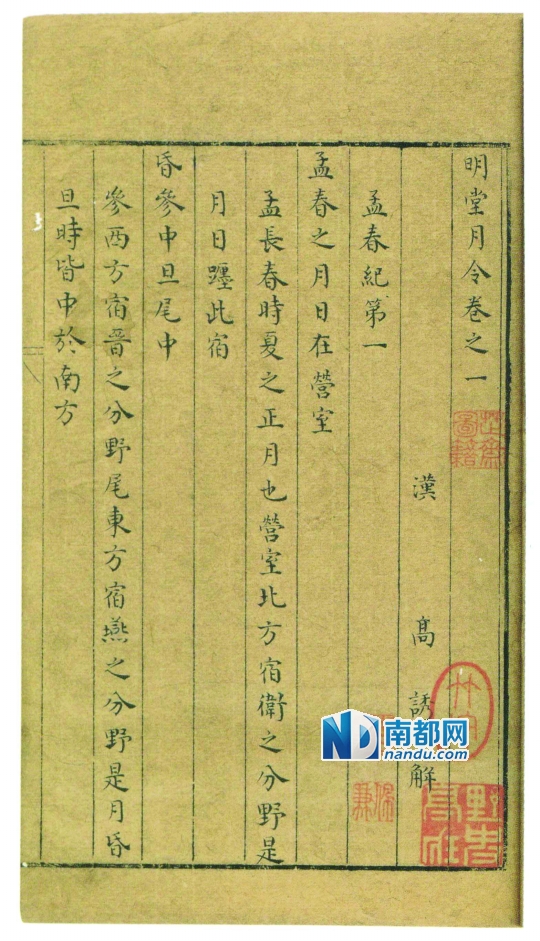 明堂月令卷之一
漢 高 誘 解
孟春紀第一
孟春之月日在營室
孟長春時夏之正月也營室北方宿衛之分野是
月日躔此宿
昏參中旦尾中
參西方宿晉之分野尾東方宿燕之分野是月昏
旦時皆中於南方
ND 南都网
nandu.com